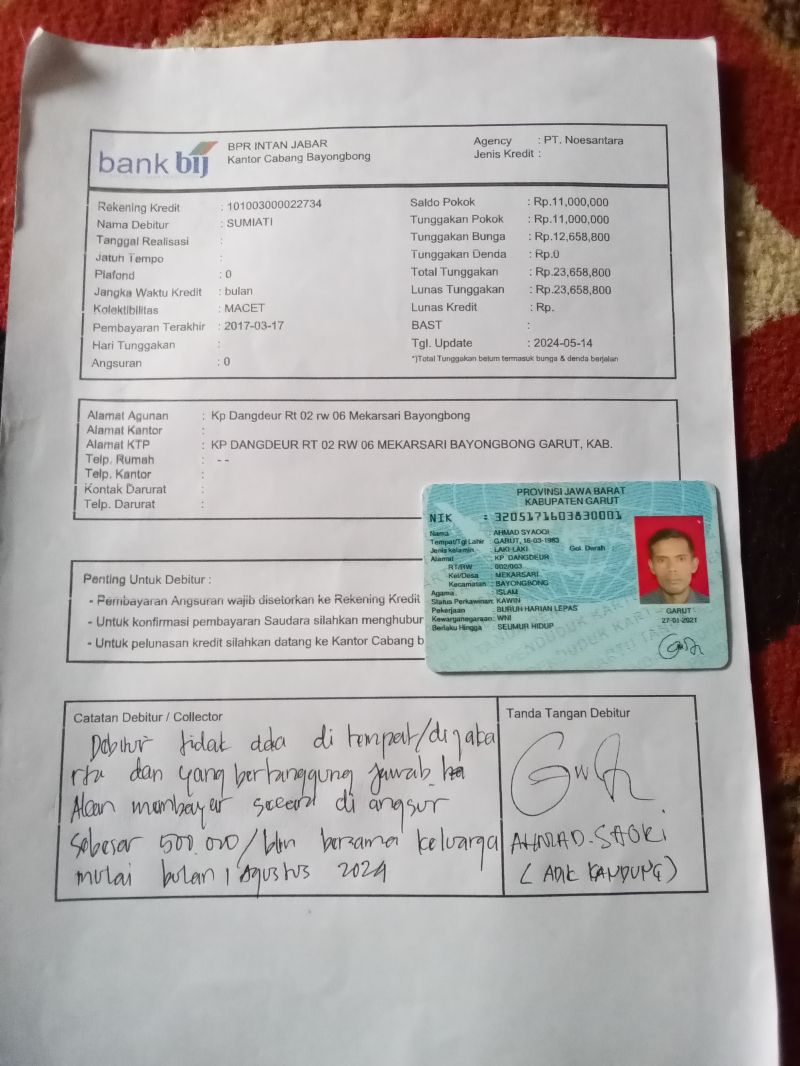 bank bij
BPR INTAN JABAR
Kantor Cabang Bayongbong
Agency : PT. Noesantara
Jenis Kredit :
Rekening Kredit : 101003000022734
Nama Debitur : SUMIATI
Tanggal Realisasi :
Jatuh Tempo :
Plafond : 0
Jangka Waktu Kredit : bulan
Kolektibilitas : MACET
Pembayaran Terakhir : 2017-03-17
Hari Tunggakan :
Angsuran : 0
Saldo Pokok : Rp.11,000,000
Tunggakan Pokok : Rp.11,000,000
Tunggakan Bunga : Rp.12,658,800
Tunggakan Denda : Rp.0
Total Tunggakan : Rp.23,658,800
Lunas Tunggakan : Rp.23,658,800
Lunas Kredit : Rp.
BAST :
Tgl. Update : 2024-05-14
*)Total Tunggakan belum termasuk bunga & denda berjalan
Alamat Agunan : Kp Dangdeur Rt 02 rw 06 Mekarsari Bayongbong
Alamat Kantor :
Alamat KTP : KP DANGDEUR RT 02 RW 06 MEKARSARI BAYONGBONG GARUT, KAB.
Telp. Rumah : - -
Telp. Kantor :
Kontak Darurat :
Telp. Darurat :
PROVINSI JAWA BARAT
KABUPATEN GARUT
NIK : 3205171603830001
Nama : AHMAD SYAOGI
Tempat/Tgl Lahir : GARUT, 16-03-1983
Jenis kelamin : LAKI-LAKI Gol. Darah
Alamat : KP DANGDEUR
RT/RW : 002/003
Kel/Desa : MEKARSARI
Kecamatan : BAYONGBONG
Agama : ISLAM
Status Perkawinan: KAWIN
Pekerjaan : BURUH HARIAN LEPAS
Kewarganegaraan: WNI
Berlaku Hingga : SEUMUR HIDUP
GARUT
27-01-2021
Penting Untuk Debitur :
- Pembayaran Angsuran wajib disetorkan ke Rekening Kredit
- Untuk konfirmasi pembayaran Saudara silahkan menghubur
- Untuk pelunasan kredit silahkan datang ke Kantor Cabang b
Catatan Debitur / Collector
Debitur tidak ada di tempat/di jaka
rta dan yang bertanggung jawab
Akan membayar secara di angsur
sebesar 500.000/bln bersama keluarga
mulai bulan 1 Agustus 2024
Tanda Tangan Debitur
AHMAD.SAOKI
(ADIK KANDUNG)